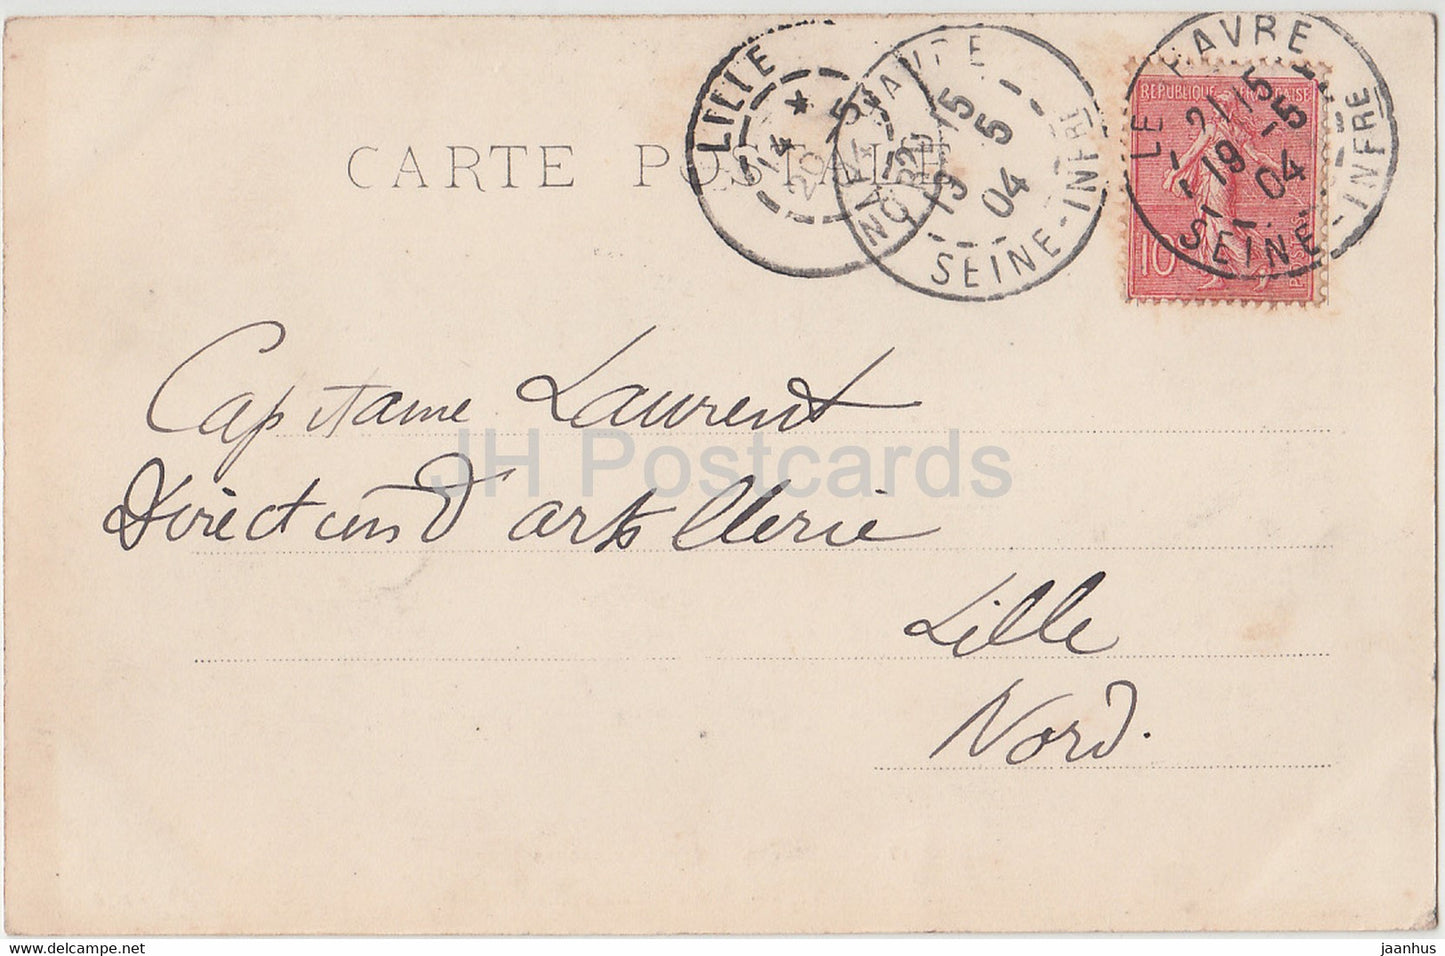 CARTE POSTALE
LILLE
14 * 5
20
15
19 5
04
SEINE-INFRE
LE HAVRE
21 15
19 5
04
SEINE-INFRE
REPUBLIQUE FRANÇAISE
10
Capitaine Laurent
Direction d'artillerie
Lille
Nord.
JH Postcards
https://www.delcampe.net
jaanhus